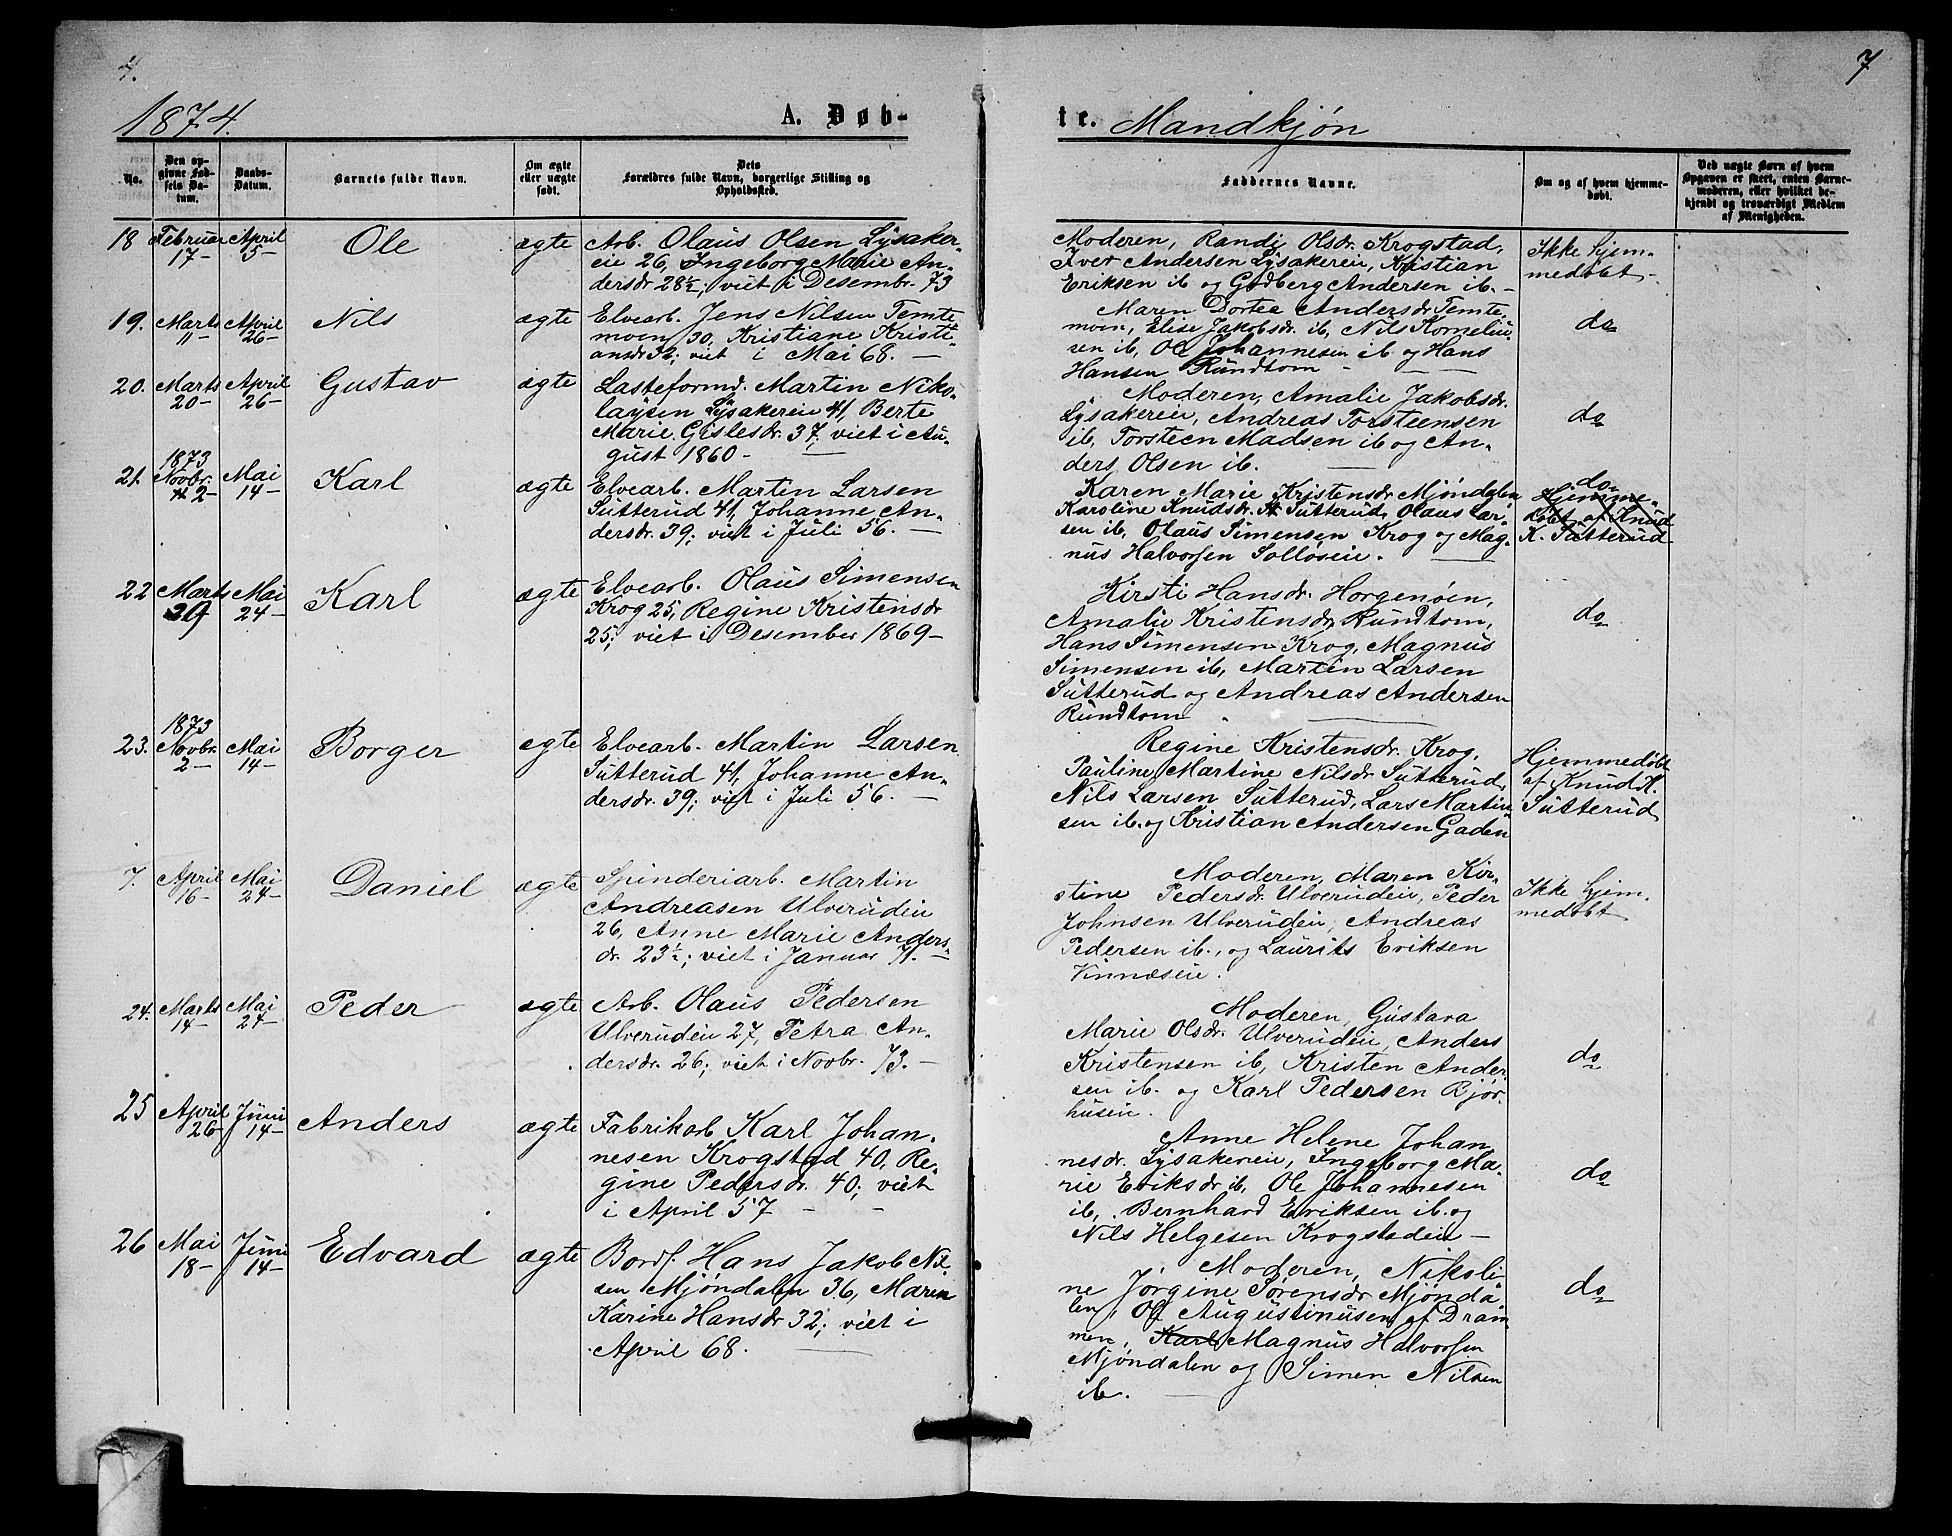 4.
7
1874.
A. Døb-
te. Mandkjøn
No.
Den opgivne Fødsels Datum.
Daabs-Datum.
Barnets fulde Navn.
Om ægte eller uægte født.
Dets Forældres fulde Navn, borgerlige Stilling og Opholdssted.
Faddernes Navne.
Om og af hvem hjemmedøbt.
Ved uægte Børn af hvem Opgaven er skeet, enten Barnemoderen, eller hvilket bekjendt og troværdigt Medlem af Menigheden.
18 Februar 17- April 5- Ole ægte
Arb. Olaus Olsen Lysaker-
eie 26, Ingeborg Marie An-
dersdr. 28½; viet i Desembr. 73
Moderen, Randi Olsdr. Krogstad,
Iver Andersen Lysakereie, Kristian
Eriksen ib og Gudberg Andersen ib. -
Ikke hjem-
medøbt -
19. Marts 11- April 26- Nils ægte
Elvearb. Jens Nilsen Temte-
moen 30, Kristiane Kristi-
ansdr 32; viet i Mai 68. -
Maren Dortea Andersdr Temte-
moen, Elise Jakobsdr. ib, Nils Kornelius-
sen ib, Ole Johannesen ib og Hans
Hansen Rundtom -
do
20. Marts 20- April 26- Gustav ægte
Lasteformd. Martin Niko-
laysen Lysakereie 41, Berte
Marie Gislesdr. 37; viet i Au-
gust 1860 -
Moderen, Amalie Jakobsdr.
Lysakereie, Andreas Torsteensen
ib, Torsteen Madsen ib og An-
ders Olsen ib.
do
21. 1873 Novbr. 2- Mai 14- Karl ægte
Elvearb. Martin Larsen
Sutterud 41, Johanne An-
dersdr. 39; viet i Juli 56. -
Karen Marie Kristensdr Mjøndalen,
Karoline Knudsdr. Sutterud, Olaus Lar-
sen ib, Olaus Simensen Krog og Mag-
nus Halvorsen Solløseie.
do
Hjemme-
døbt af Knud
K. Sutterud
22 Marts 29 Mai 24- Karl ægte
Elvearb. Olaus Simensen
Krog 25, Regine Kristensdr
25; viet i Desember 1869 -
Kirsti Hansdr. Horgenøen,
Amalie Kristensdr Rundtom,
Hans Simensen Krog, Magnus
Simensen ib, Martin Larsen
Sutterud og Andreas Andersen
Rundtom
do
23. 1873 Novbr. 2- Mai 14- Borger ægte
Elvearb. Martin Larsen
Sutterud 41, Johanne An-
dersdr. 39; viet i Juli 56. -
Regine Kristensdr. Krog,
Pauline Martine Nilsdr Sutterud,
Nils Larsen Sutterud, Lars Martin-
sen ib. og Kristian Andersen Gaden
Hjemmedøbt
af Knud K.
Sutterud
7. April 16- Mai 24- Daniel ægte
Spinderiarb. Martin
Andreasen Ulverudeie
26, Anne Marie Anders-
dr. 23½; viet i Januar 71. -
Moderen, Maren Kir-
stine Pedersdr. Ulverudeie, Peder
Johnsen Ulverudeie, Andreas
Pedersen ib., og Laurits Eriksen
Vinnæseie.
Ikke hjem-
medøbt
24. Marts 14- Mai 24- Peder ægte
Arb. Olaus Pedersen
Ulverudeie 27, Petra An-
dersdr. 26; viet i Novbr. 73. -
Moderen, Gustava
Marie Olsdr. Ulverudeie, Anders
Kristensen ib, Kristen Ander-
sen ib. og Karl Pedersen Bjør-
huseie.
do
25 April 26- Juni 14- Anders ægte
Fabrikarb Karl Johan-
nesen Krogstad 40, Re-
gine Pedersdr. 40; viet
i April 57 - -
Anne Helene Johan-
nesdr. Lysakereie, Ingeborg Ma-
rie Eriksdr ib, Ole Johannesen
ib, Bernhard Eriksen ib. og
Nils Helgesen Krogstadeie -
do
26 Mai 18- Juni 14- Edvard ægte
Bordf. Hans Jakob Nil-
sen Mjøndalen 36, Maren
Karine Hansdr 32; viet i
April 68. -
Moderen, Nikoli-
ne Jørgine Sørensdr Mjønda-
len, Ole Augustinusen af Dram-
men, Karl Magnus Halvorsen
Mjøndalen og Simen Nilsen
ib. -
do